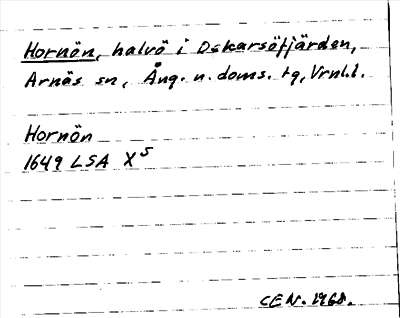 Hornön, halvö i Oskarsöfjärden,
Arnäs sn, Ång. n. doms. tg, Vrnl.l.
Hornön
1649 LSA X⁵
CEN. 1968.